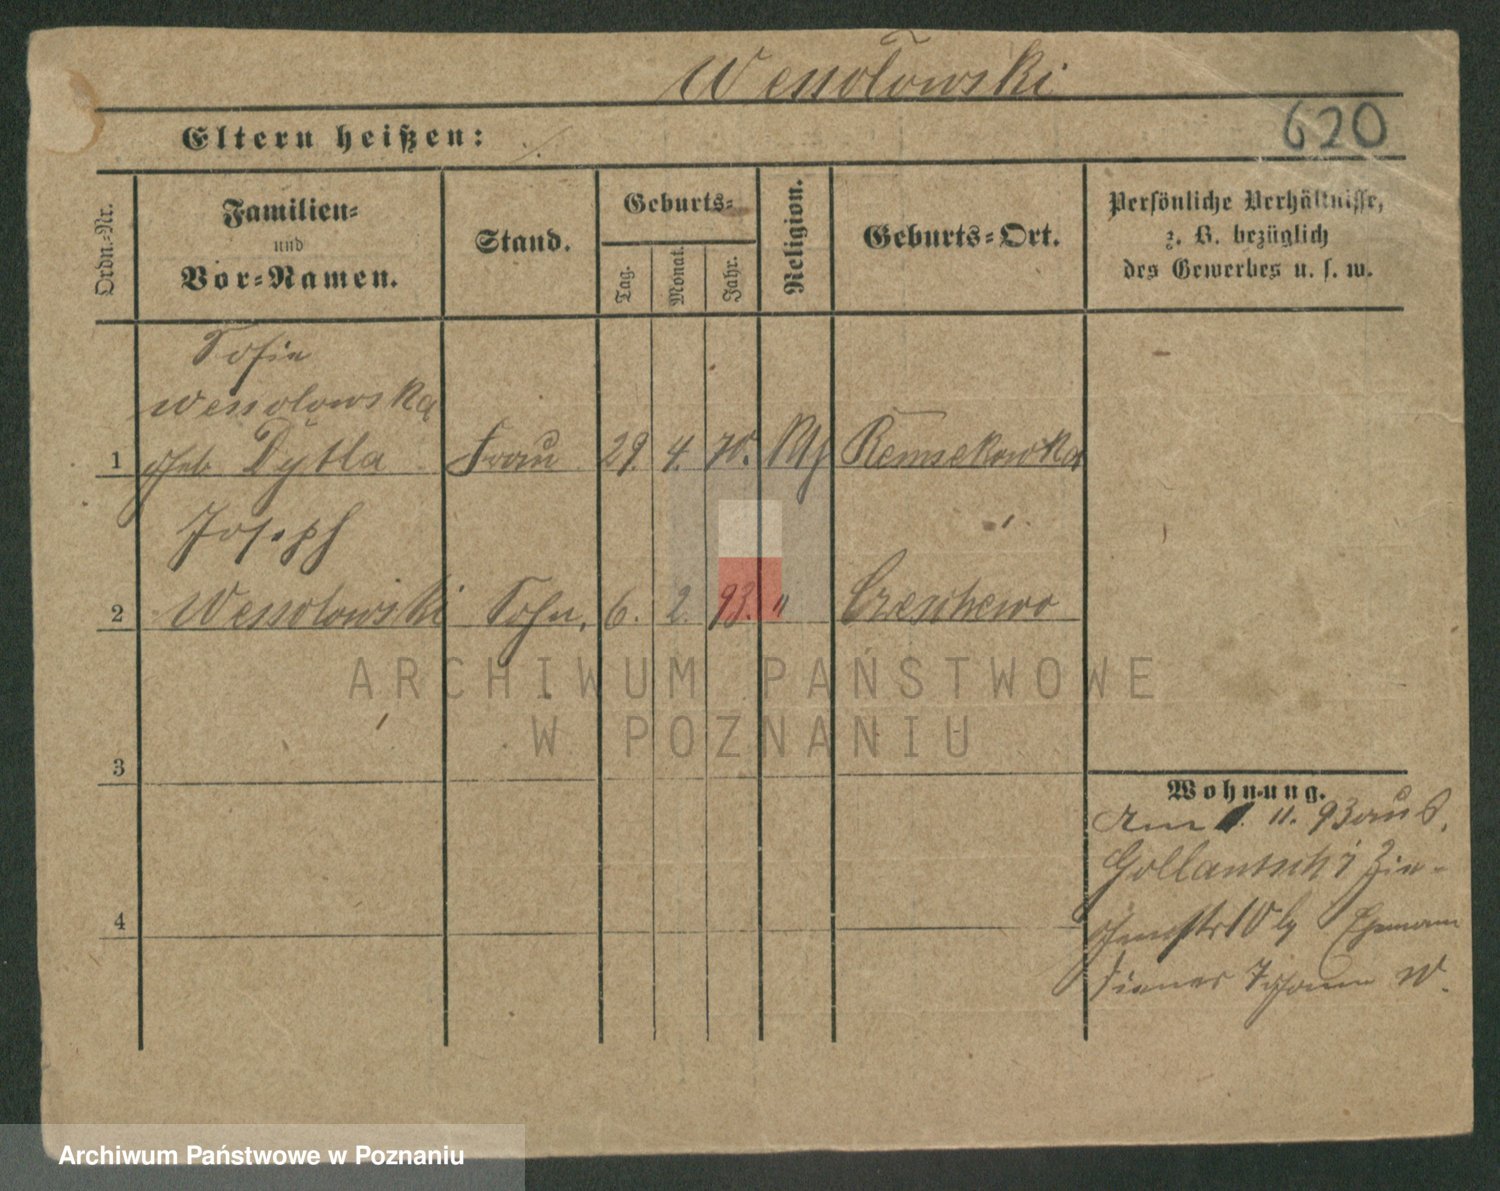 Wessołowski
620
Eltern heißen:
Ordn.-Nr.
Familien-
und
Vor-Namen.
Stand.
Geburts-
Tag.
Monat.
Jahr.
Religion.
Geburts-Ort.
Persönliche Verhältnisse,
z. B. bezüglich
des Gewerbes u. s. w.
Sofie
Wessolowska
1 geb. Dytla Frau 29. 4. 70. Remsekowka
Joseph
2 Wessolowski Sohn, 6. 2. 93. "
3
4
Wohnung.
Am 1. 11. 93 aus
Gollantsch
Ehemann
Diener Johann W.
ARCHIWUM PAŃSTWOWE
W POZNANIU
Archiwum Państwowe w Poznaniu